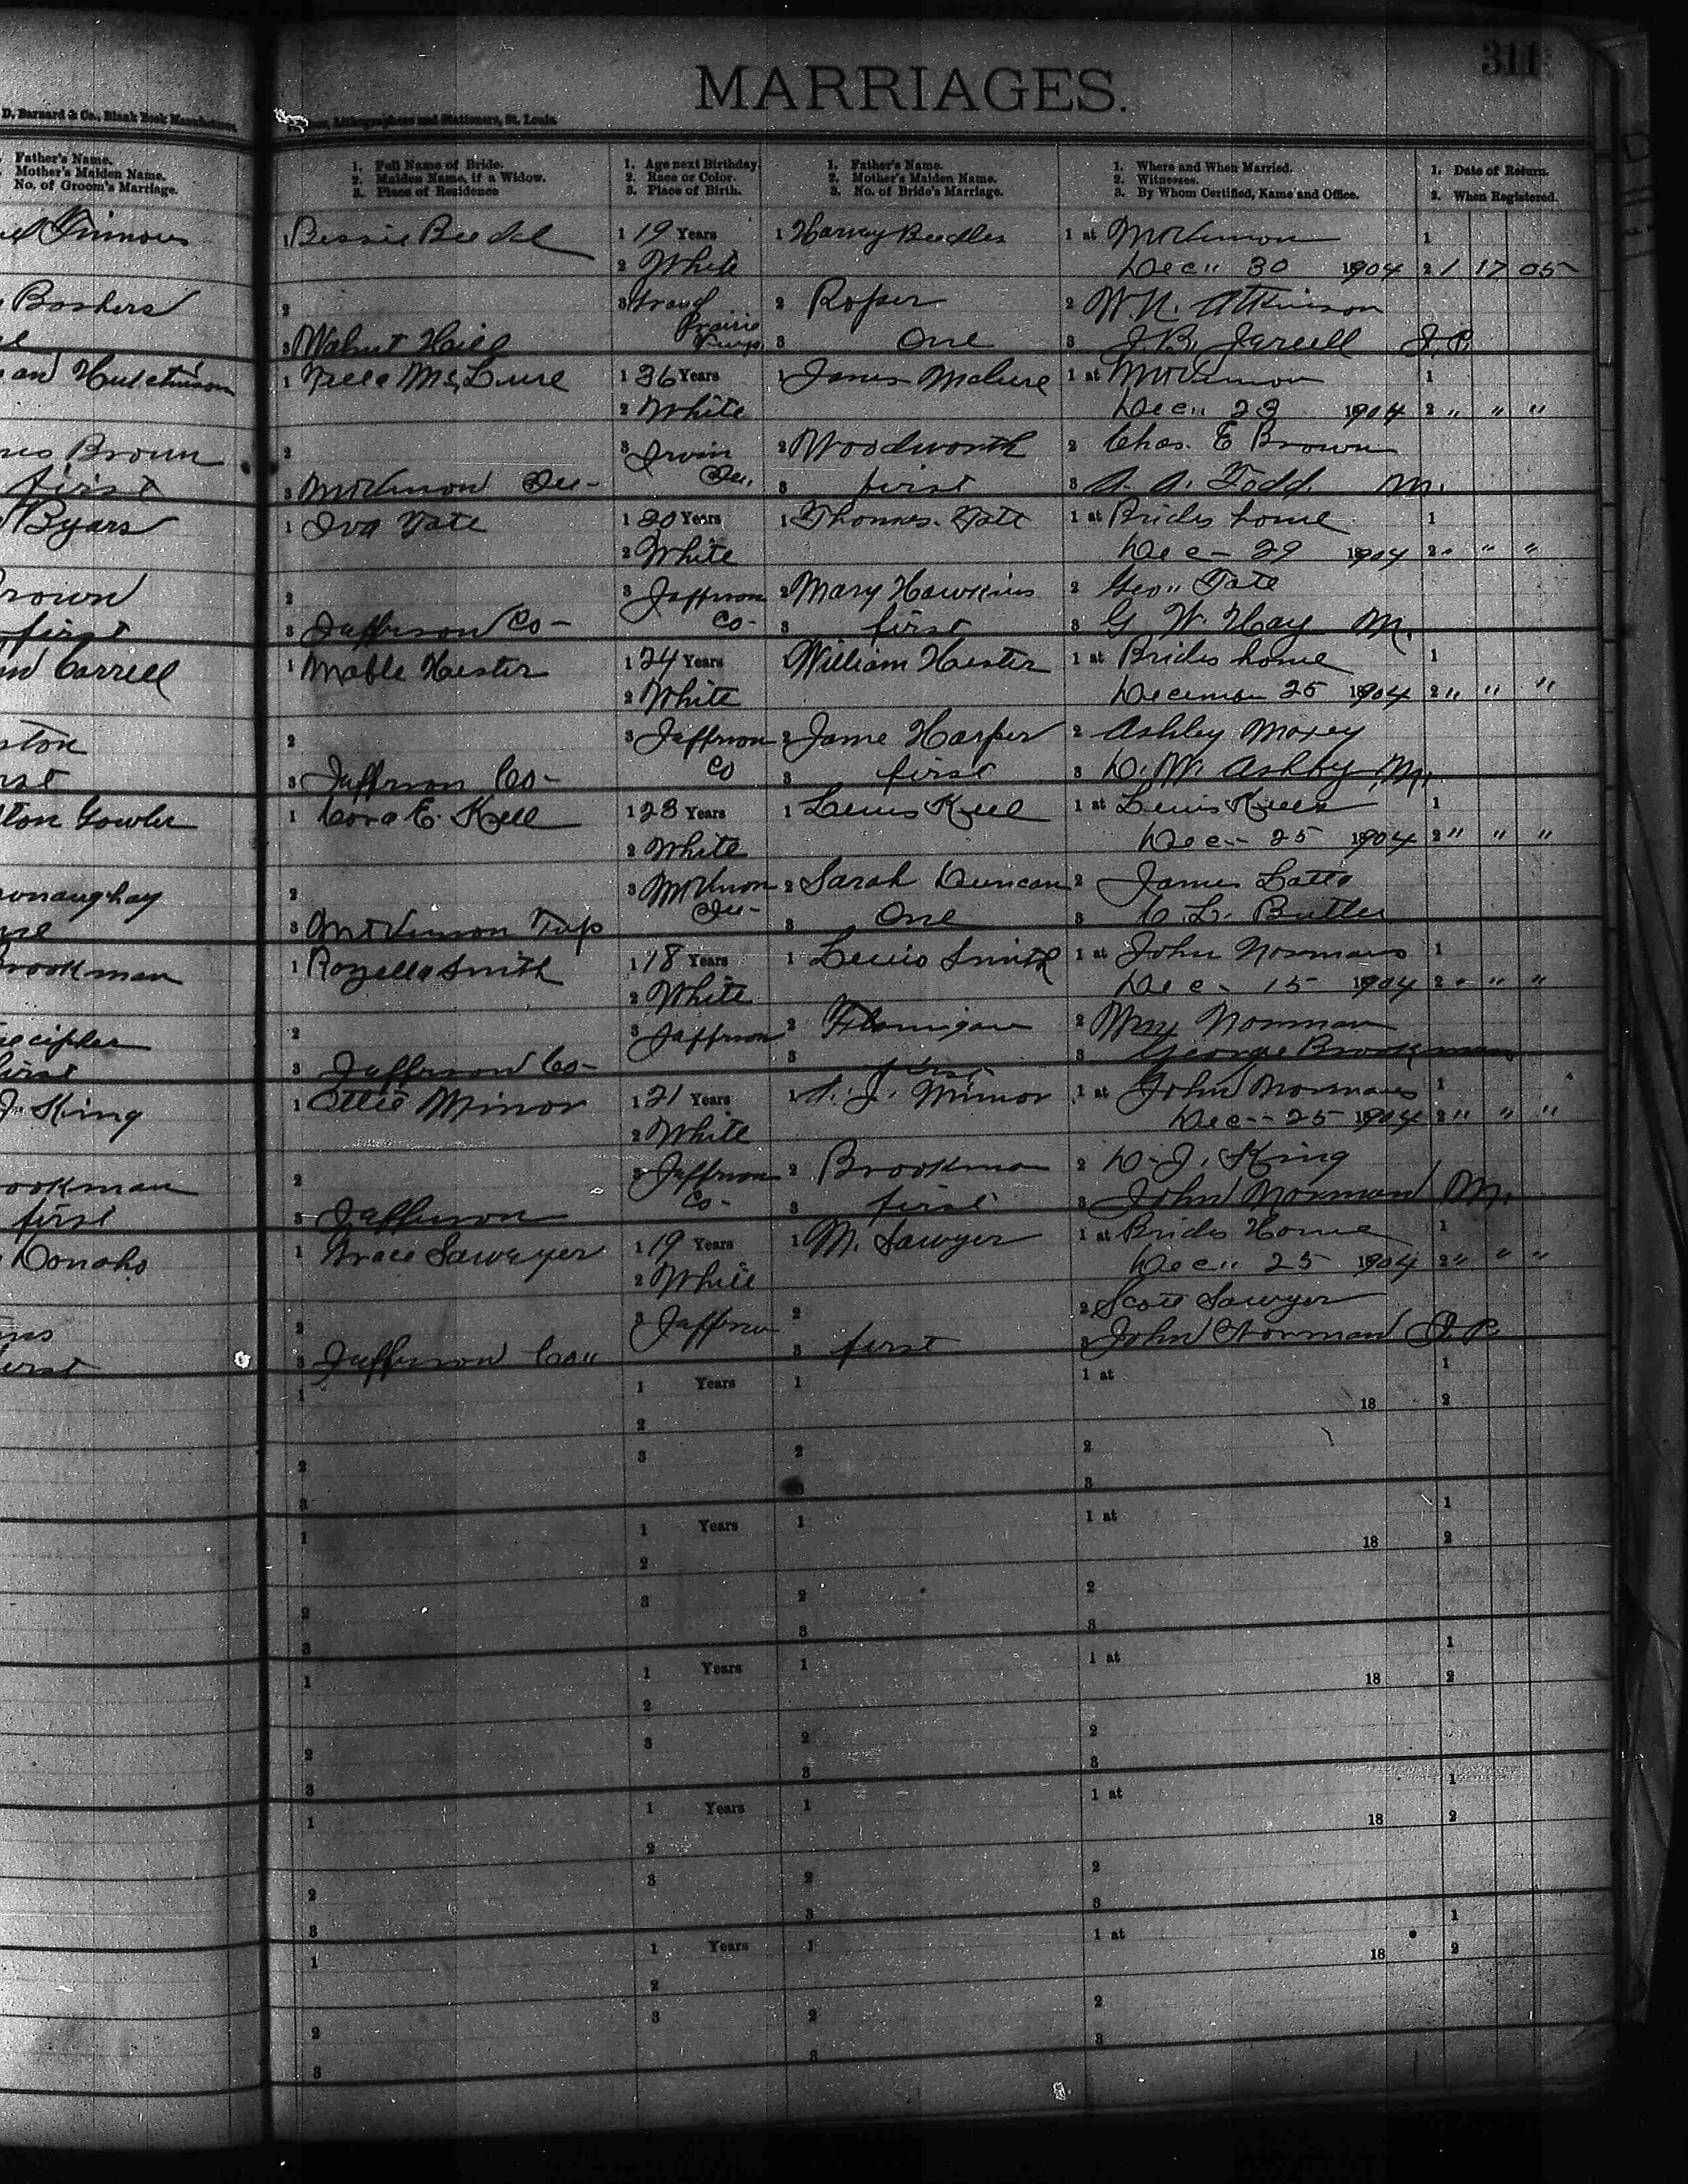 311
MARRIAGES.
D. Barnard & Co., Blank Book Manufacturers, Lithographers and Stationers, St. Louis.
Father's Name.
Mother's Maiden Name.
No. of Groom's Marriage.
1. Full Name of Bride.
2. Maiden Name, if a Widow.
3. Place of Residence
1. Age next Birthday.
2. Race or Color.
3. Place of Birth.
1. Father's Name.
2. Mother's Maiden Name.
3. No. of Bride's Marriage.
1. Where and When Married.
2. Witnesses.
3. By Whom Certified, Name and Office.
1. Date of Return.
2. When Registered.
1 Bessie Beedel 1 19 Years 1 Harvey Beedles 1 at Mt Vernon 1
2 White Dec 30 1904 2 1 17 05
Boshers 2 3 Grand Prairie 2 Roper 2 W. N. Atkinson
3 Walnut Hill 3 One 3 J. B. Jarrell J. P.
Hutchinson 1 McLure 1 36 Years 1 James McLure 1 at Mt Vernon 1
2 White Dec 23 1904 2 " " "
Brown 2 3 Irvin 2 Woodworth 2 Chas. E Brown
first 3 Mt Vernon Ills - Ills. 3 first 3 A. A. Todd M.
Byars 1 Iva Tate 1 20 Years 1 Thomas Tate 1 at Brides home 1
2 White Dec - 29 1904 2 " " "
2 3 Jefferson 2 Mary Hawkins 2 Geo Tate
first 3 Jefferson Co - Co - 3 first 3 G W. Hay M.
Carrell 1 Mable Hester 1 24 Years 1 William Hester 1 at Brides home 1
2 White 25 1904 2 " " "
2 3 Jefferson 2 Jame Harper 2 Ashley Maxey
3 Jefferson Co - Co 3 first 3 D. W. Ashby M.
Gowler 1 Cora E. Kell 1 23 Years 1 Lewis Kell 1 at Lewis Kells 1
2 White Dec - 25 1904 2 " " "
2 3 Mt Vernon 2 Sarah Duncan 2 James
3 Mt Vernon Twp Ills - 3 One 3 C. L. Butler
Brookman 1 Rozella Smith 1 18 Years 1 Lewis Smith 1 at John Normans 1
2 White Dec - 15 1904 2 " " "
2 3 Jefferson 2 Flannigan 2 Norman
first 3 Jefferson Co - 3 first 3 George Brookman
J. King 1 Ettie Minor 1 21 Years 1 J. Minor 1 at John Normans 1
2 White Dec - 25 1904 2 " " "
2 3 Jefferson 2 Brookman 2 D. J. King
first 3 Jefferson Co - 3 first 3 John Norman M.
Donoho 1 Grace Saweyer 1 19 Years 1 M. Sawyer 1 at Brides Home 1
2 White Dec 25 1904 2 " " "
2 3 Jefferson 2 2 Scott Sawyer
first 3 Jefferson Co 3 first 3 John Norman J. P.
1 1 Years 1 1 at 1
2 18 2
2 3 2 2
3 3 3
1 1 Years 1 1 at 1
2 18 2
2 3 2 2
3 3 3
1 1 Years 1 1 at 1
2 18 2
2 3 2 2
3 3 3
1 1 Years 1 1 at 1
2 18 2
2 3 2 2
3 3 3
1 1 Years 1 1 at 1
2 18 2
2 3 2 2
3 3 3